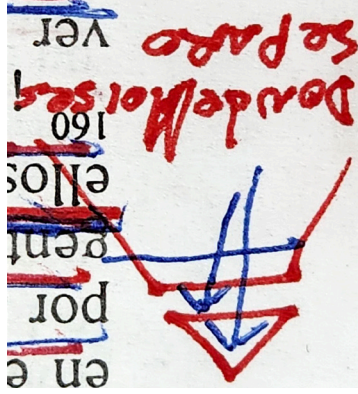 en e
por
gent
ellos
160
Donde Moises
se paro
ver